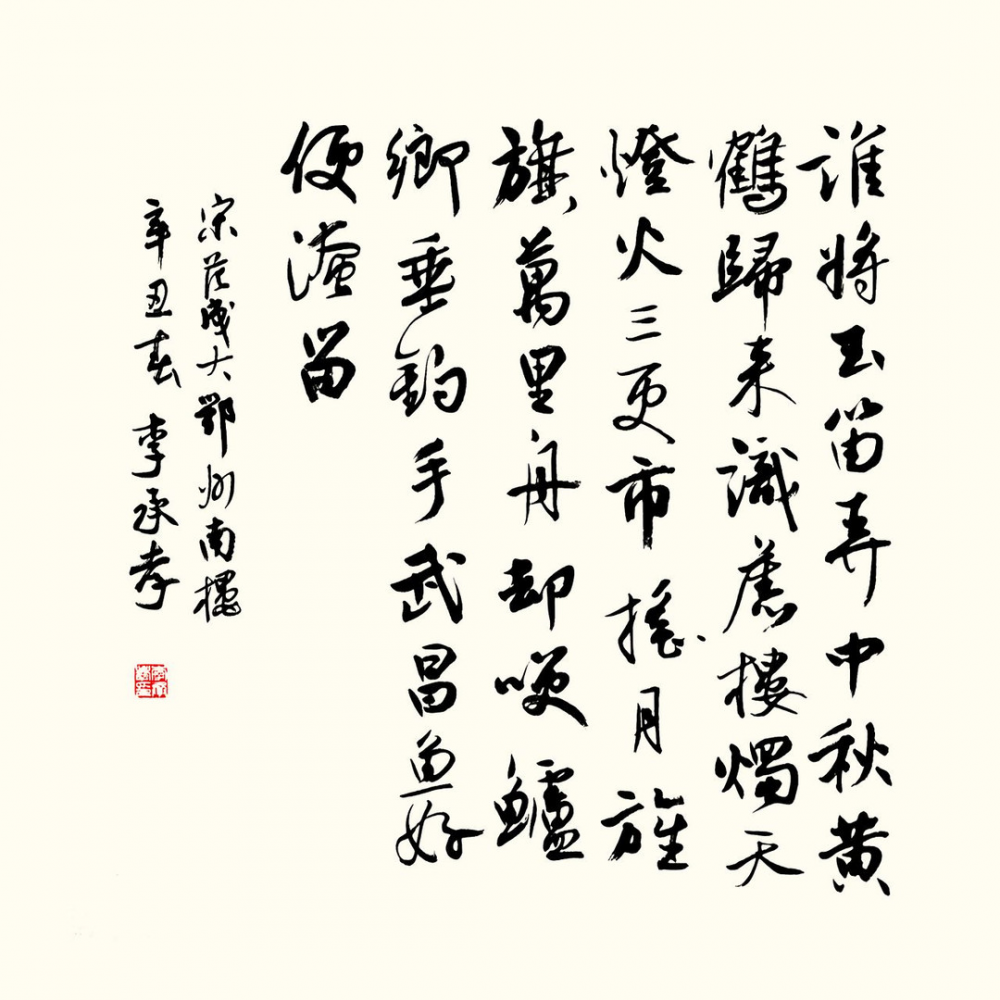 誰將玉笛弄中秋黄
鶴歸来識舊樓燭天
燈火三更市搖月旌
旗萬里舟却咲鱸
鄉垂釣手武昌魚好
便淹留
宋范成大鄂州南樓
辛丑春 李承孝